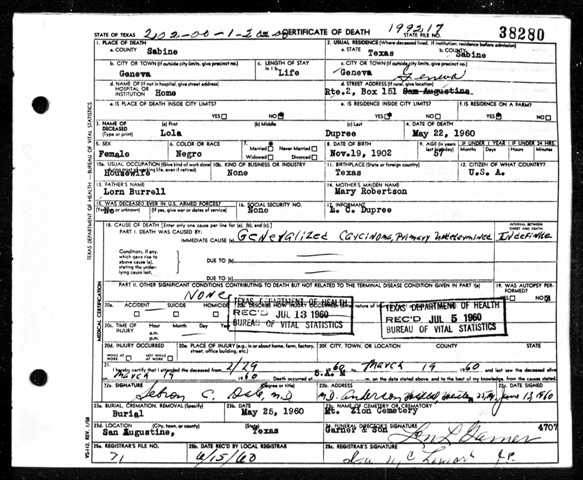 STATE OF TEXAS CERTIFICATE OF DEATH 199217 STATE FILE NO. 38280
1. PLACE OF DEATH 2. USUAL RESIDENCE (Where deceased lived. If institution: residence before admission)
a. COUNTY Sabine a. STATE Texas b. COUNTY Sabine
b. CITY OR TOWN (If outside city limits, give precinct no.) c. LENGTH OF STAY c. CITY OR TOWN (If outside city limits, give precinct no.)
Geneva Life Geneva Geneva
d. NAME OF (If not in hospital, give street address) HOSPITAL OR INSTITUTION Home d. STREET ADDRESS (If rural, give location) Rte.2, Box 151 San Augustine
e. IS PLACE OF DEATH INSIDE CITY LIMITS? e. IS RESIDENCE INSIDE CITY LIMITS? f. IS RESIDENCE ON A FARM?
YES NO YES NO YES NO
3. NAME OF DECEASED (Type or print) (a) First (b) Middle (c) Last 4. DATE OF DEATH
Lola Dupree May 22, 1960
5. SEX 6. COLOR OR RACE 7. Married Never Married Widowed Divorced 8. DATE OF BIRTH 9. AGE IF UNDER 1 YEAR IF UNDER 24 HRS.
Female Negro Nov.19, 1902 57 Months Days Hours Min.
10a. USUAL OCCUPATION (Give kind of work done during most of working life, even if retired) 10b. KIND OF BUSINESS OR INDUSTRY 11. BIRTHPLACE (State or foreign country) 12. CITIZEN OF WHAT COUNTRY?
Housewife None Texas U.S. A.
13. FATHER'S NAME 14. MOTHER'S MAIDEN NAME
Lorn Burrell Mary Robertson
15. WAS DECEASED EVER IN U.S. ARMED FORCES? 16. SOCIAL SECURITY NO. 17. INFORMANT
No (If yes, give war or dates of service) None E. C. Dupree
18. CAUSE OF DEATH [Enter only one cause per line for (a), (b), and (c).] INTERVAL BETWEEN ONSET AND DEATH
PART I. DEATH WAS CAUSED BY:
IMMEDIATE CAUSE (a) Generalized Carcinoma, Primary Undetermined Indefinite
Conditions, if any, which gave rise to above cause (a), stating the underlying cause last.
DUE TO (b)
DUE TO (c)
PART II. OTHER SIGNIFICANT CONDITIONS CONTRIBUTING TO DEATH BUT NOT RELATED TO THE TERMINAL DISEASE CONDITION GIVEN IN PART I(a) 19. WAS AUTOPSY PERFORMED?
None YES NO
20a. ACCIDENT SUICIDE HOMICIDE 20b. DESCRIBE HOW INJURY OCCURRED.
TEXAS DEPARTMENT OF HEALTH
REC'D JUL 13 1960
BUREAU OF VITAL STATISTICS
TEXAS DEPARTMENT OF HEALTH
REC'D JUL 5 1960
BUREAU OF VITAL STATISTICS
20c. TIME OF INJURY Hour Month Day Year
20d. INJURY OCCURRED 20e. PLACE OF INJURY (e.g., in or about home, farm, factory, street, office building, etc.) 20f. CITY, TOWN, OR LOCATION COUNTY STATE
WHILE AT WORK NOT WHILE AT WORK
21. I hereby certify that I attended the deceased from 2/29 1960 to March 19 1960 and last saw the deceased alive
on March 19 1960 Death occurred at m. on the date stated above; and to the best of my knowledge, from the causes stated.
22a. SIGNATURE (Degree or title) 22b. ADDRESS 22c. DATE SIGNED
M.D. M.D. Anderson June 13, 1960
23a. BURIAL, CREMATION, REMOVAL (Specify) 23b. DATE 23c. NAME OF CEMETERY OR CREMATORY
Burial May 25, 1960 Mt. Zion Cemetery
23d. LOCATION (City, town, or county) (State) 24. FUNERAL DIRECTOR'S SIGNATURE
San Augustine, Texas Garner & Son 4707
25a. REGISTRAR'S FILE NO. 25b. DATE REC'D BY LOCAL REGISTRAR 25c. REGISTRAR'S SIGNATURE
71 6/15/60
TEXAS DEPARTMENT OF HEALTH — BUREAU OF VITAL STATISTICS
MEDICAL CERTIFICATION